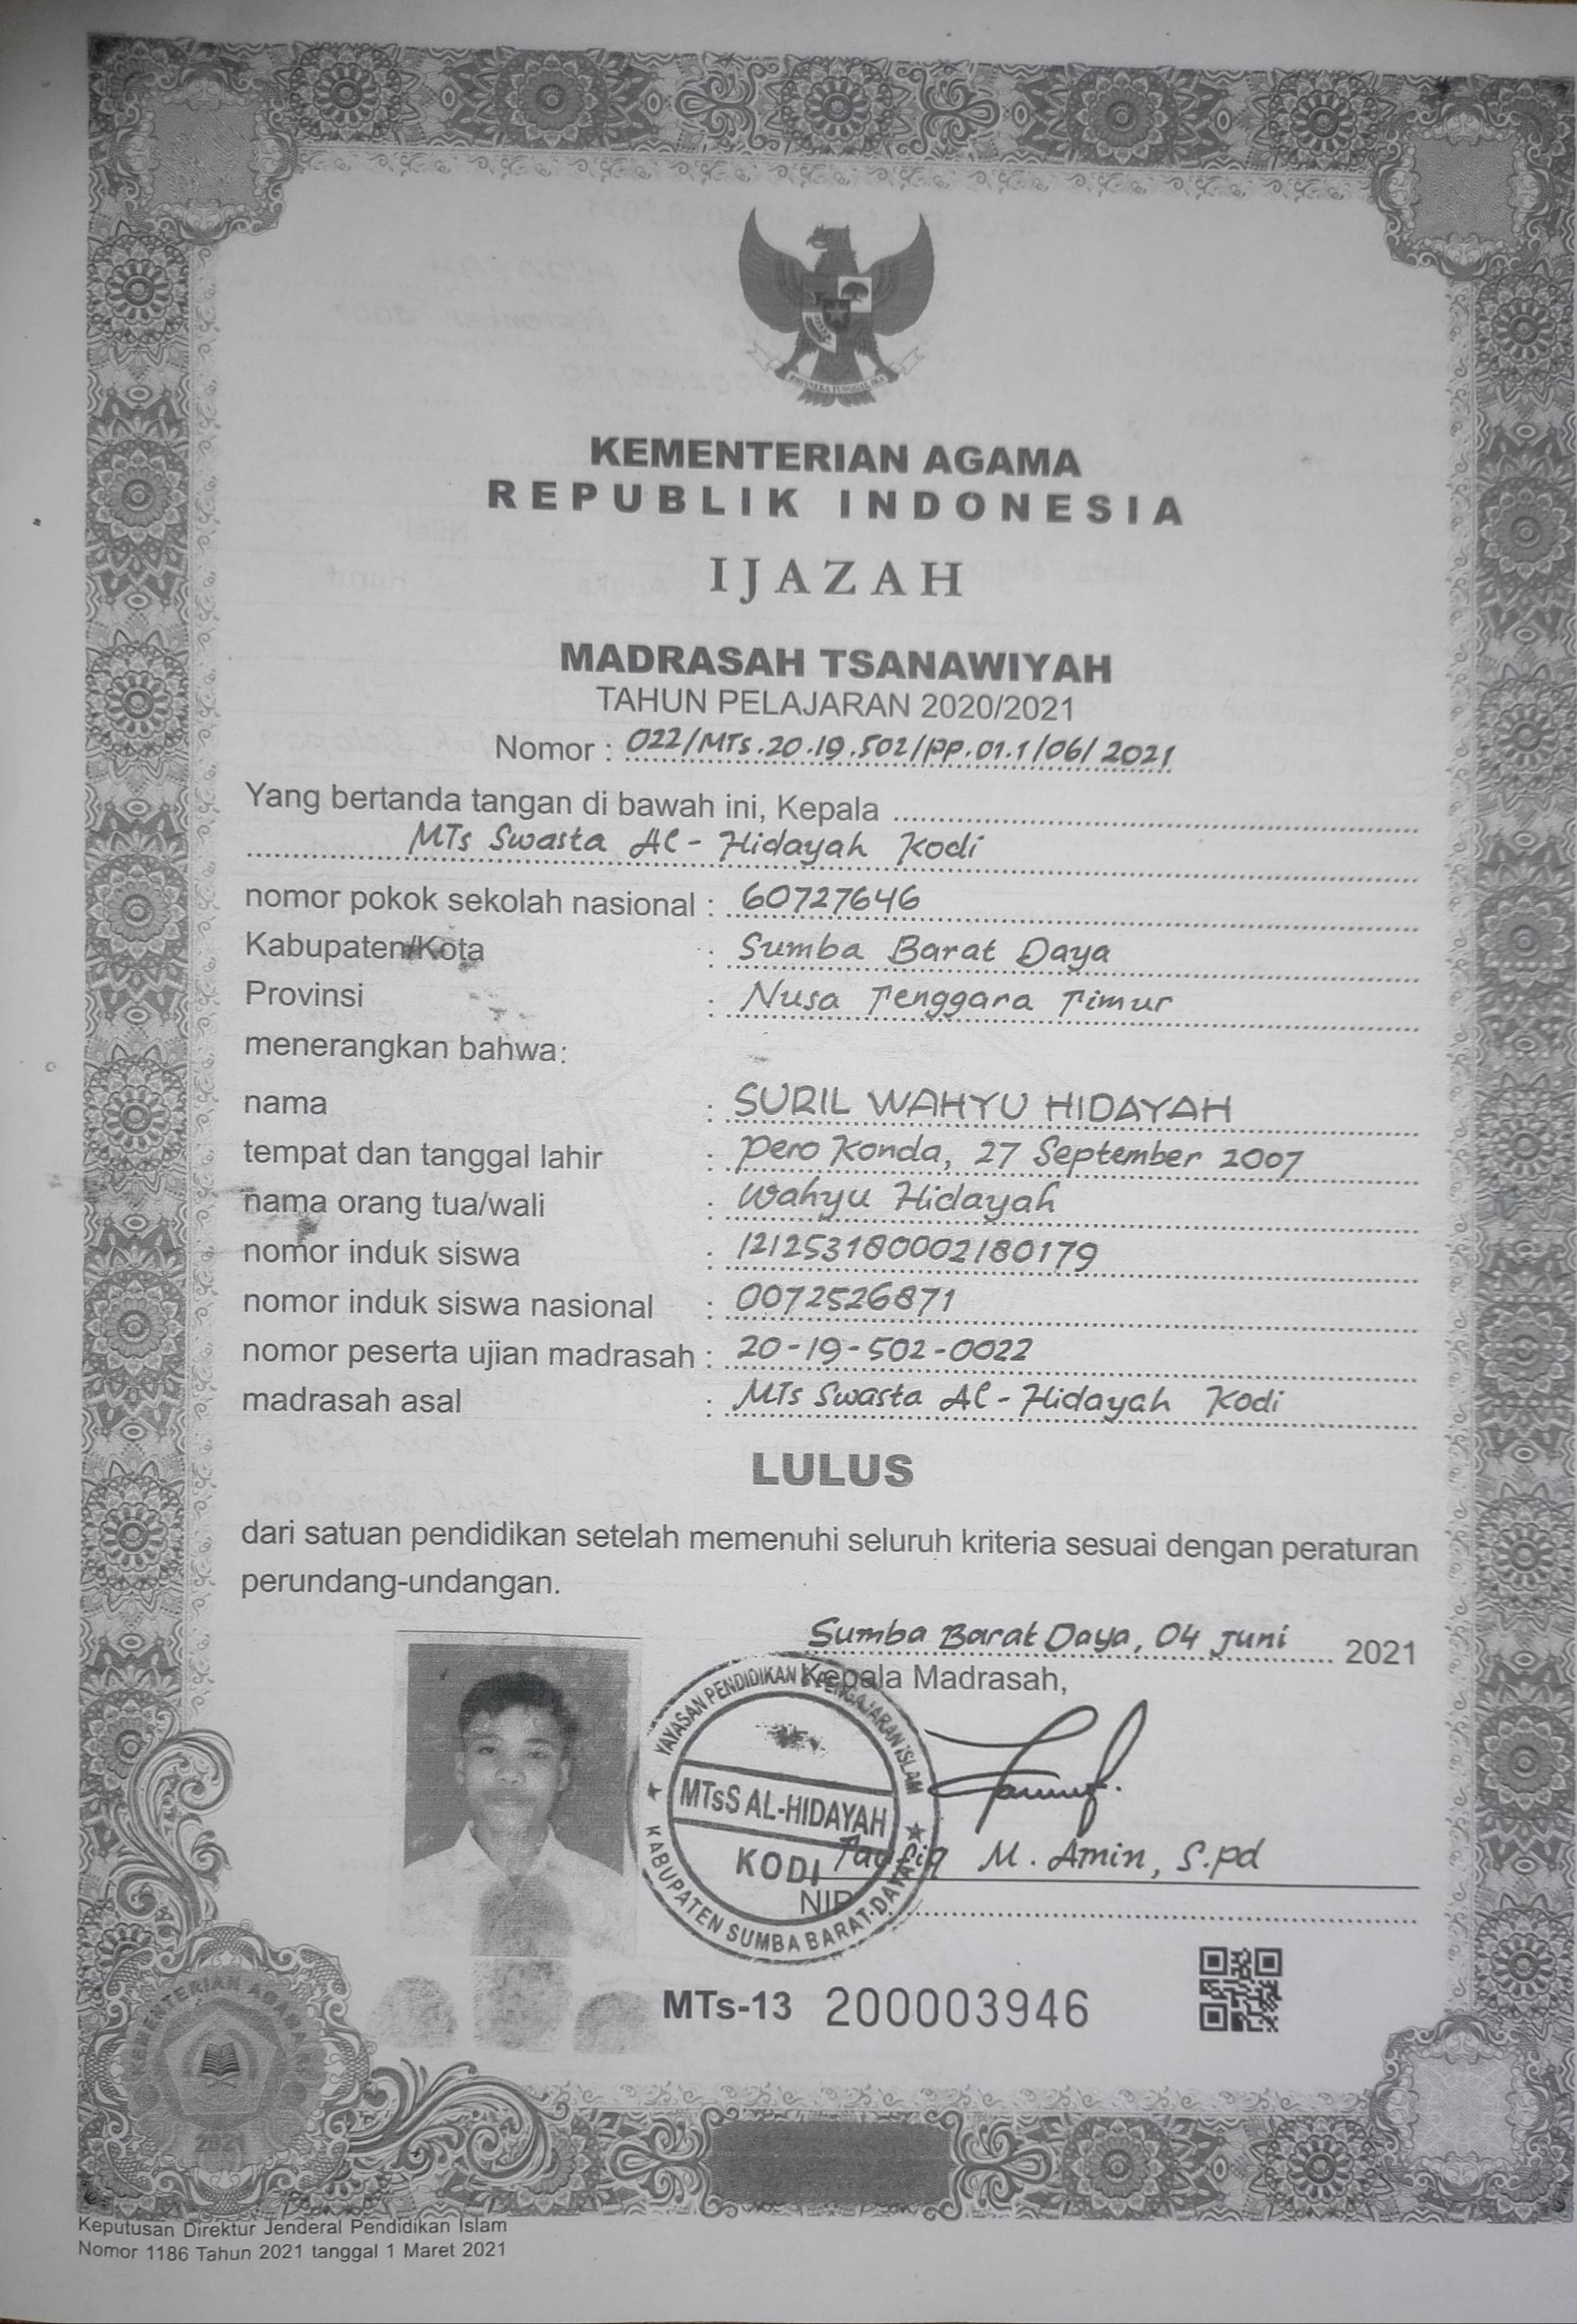 BHINNEKA TUNGGAL IKA
KEMENTERIAN AGAMA
REPUBLIK INDONESIA
IJAZAH
MADRASAH TSANAWIYAH
TAHUN PELAJARAN 2020/2021
Nomor : 022/MTs.20.19.502/PP.01.1/06/2021
Yang bertanda tangan di bawah ini, Kepala
MTs Swasta Al-Hidayah Kodi
nomor pokok sekolah nasional : 60727646
Kabupaten/Kota : Sumba Barat Daya
Provinsi : Nusa Tenggara Timur
menerangkan bahwa:
nama : SURIL WAHYU HIDAYAH
tempat dan tanggal lahir : Pero Konda, 27 September 2007
nama orang tua/wali : Wahyu Hidayah
nomor induk siswa : 121253180002180179
nomor induk siswa nasional : 0072526871
nomor peserta ujian madrasah : 20-19-502-0022
madrasah asal : MTs Swasta Al-Hidayah Kodi
LULUS
dari satuan pendidikan setelah memenuhi seluruh kriteria sesuai dengan peraturan
perundang-undangan.
Sumba Barat Daya, 04 Juni 2021
Kepala Madrasah,
YAYASAN PENDIDIKAN & PENGAJARAN ISLAM
MTsS AL-HIDAYAH
KODI
KABUPATEN SUMBA BARAT DAYA
Taufiq M. Amin, S.Pd
NIP
MTs-13 200003946
KEMENTERIAN AGAMA RI
2021
Keputusan Direktur Jenderal Pendidikan Islam
Nomor 1186 Tahun 2021 tanggal 1 Maret 2021